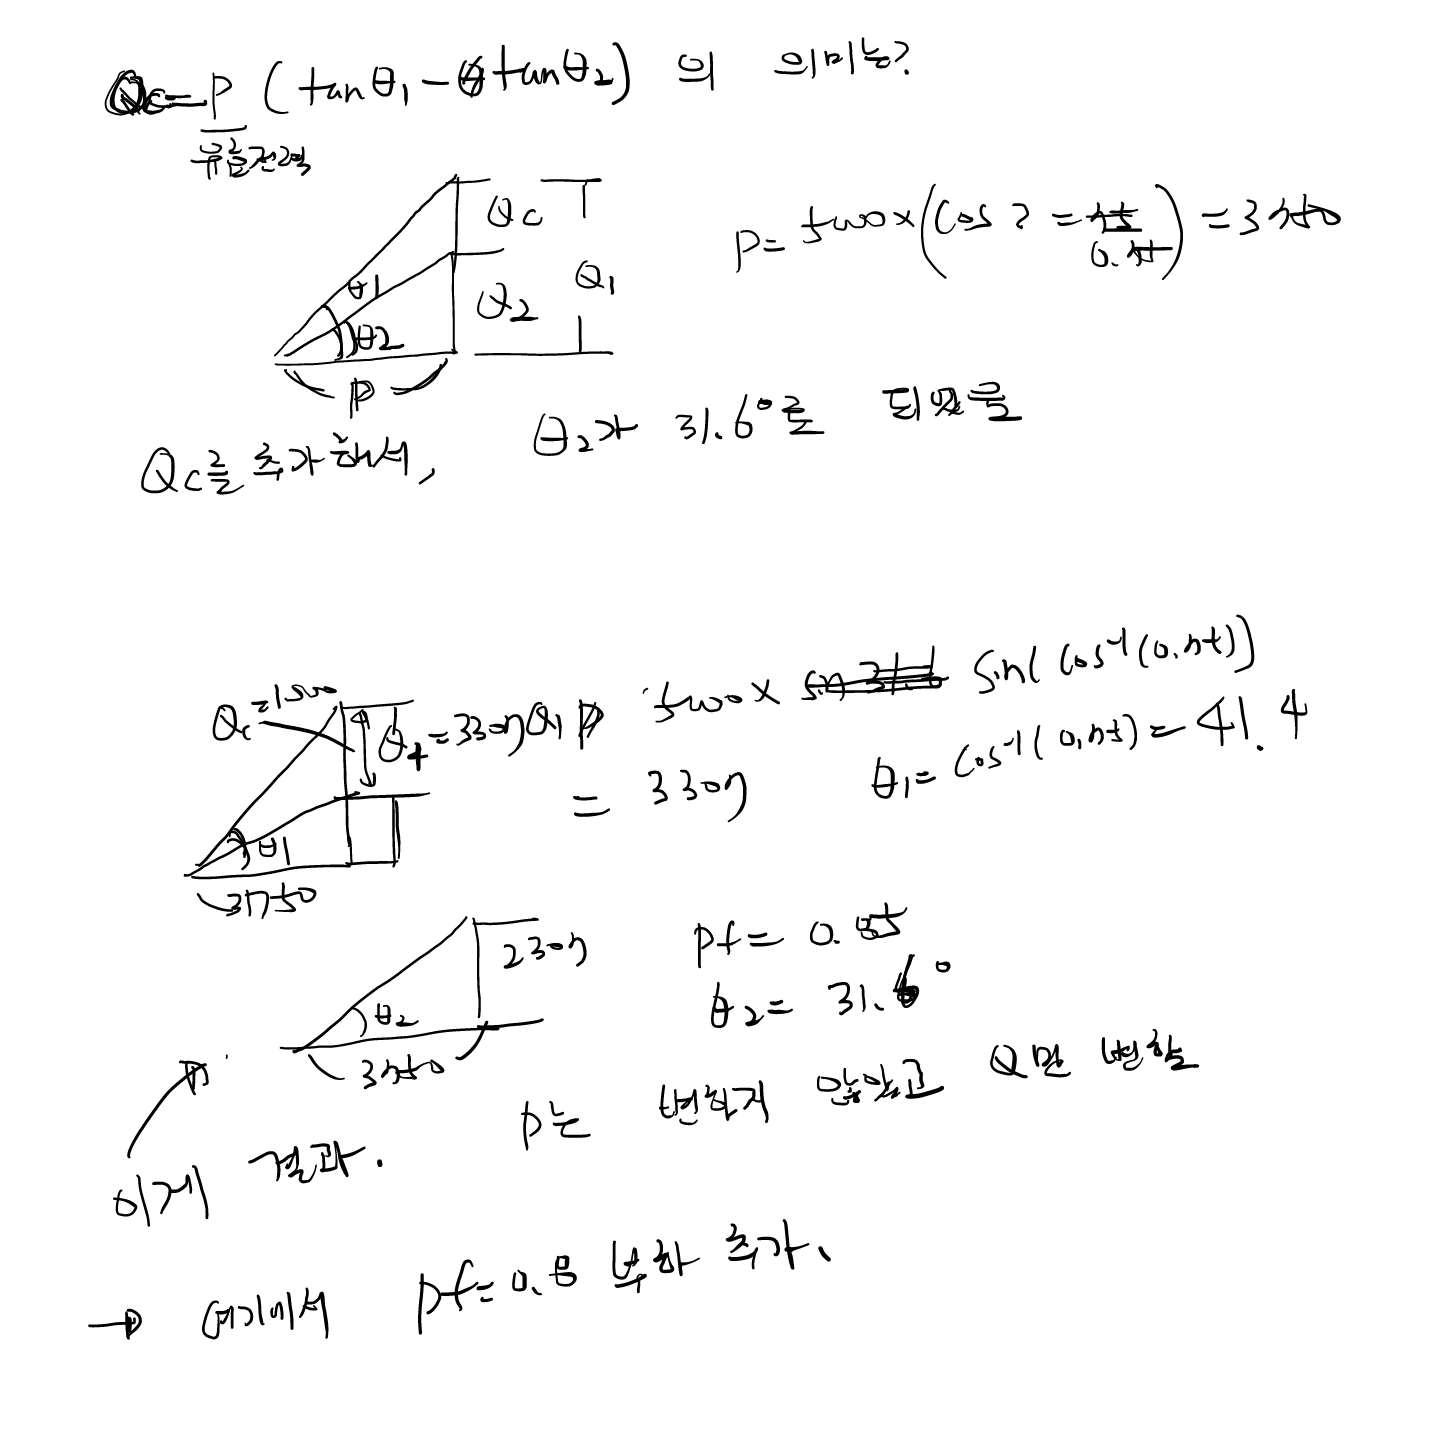 Qc=P (tanθ₁-tanθ₂) 의 의미는?
유효전력
Qc
Q₁
Q₂
θ1
θ2
P
P= 5000x(cos ? = 0.75) = 3750
Qc를 추가해서, θ₂가 31.6°로 되었을
Qc=1500
=3307
Q₁ 5000x sin(cos⁻¹(0.75))
= 3307
θ₁= cos⁻¹(0.75)= 41.4
θ1
3750
2307
θ₂
3750
pf= 0.85
θ₂= 31.6°
P는 변하지 않았고 Q만 변함
이게 결과.
→ 여기에서 pf=0.8 부하 추가.